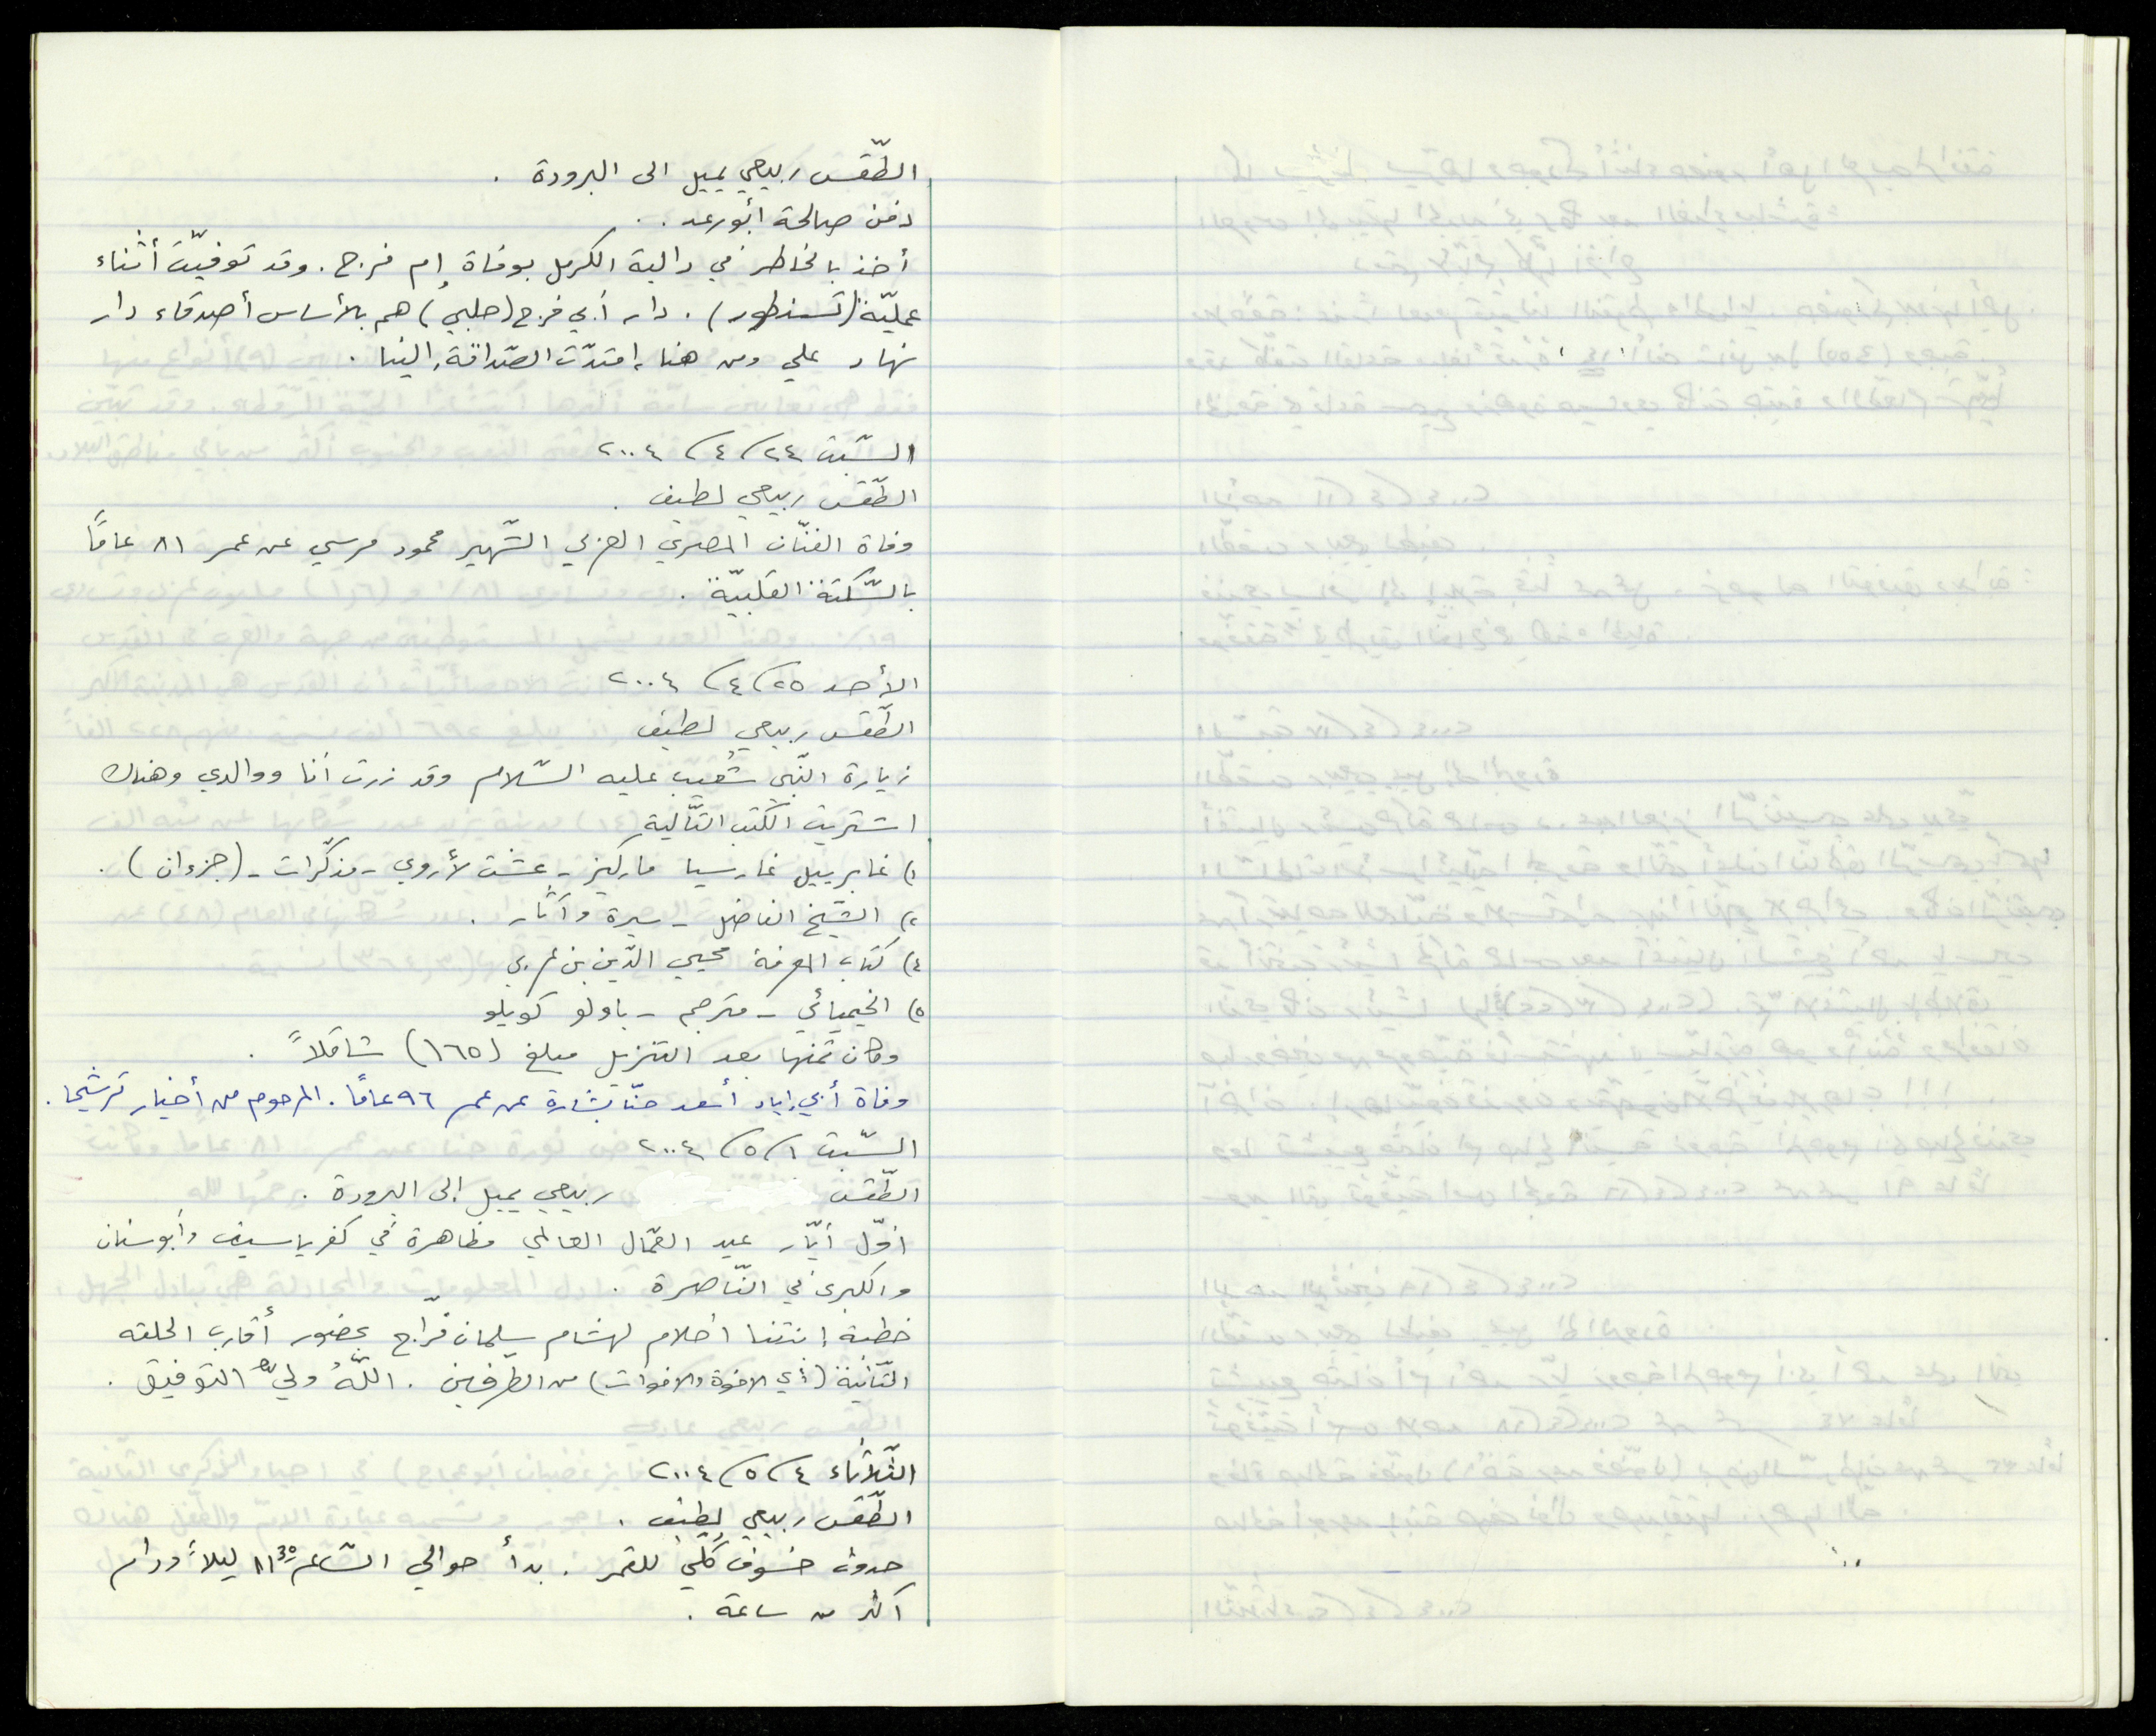 الطّقس ربيعي يميل الى البرودة .
دفن صالحة أبورعد .
أخذ بالخاطر في دالية الكرمل بوفاة إم فرج . وقد توفيّت أثناء
عمليّة (تسنطور) . دار أبي فرج (حلبي) هم بالأساس أصدقاء دار
نهاد علي ومن هنا إمتدّت الصّداقة إلينا .
السّبت ٢٤/٤/٢٠٠٤
الطّقس ربيعي لطيف .
وفاة الفنّان المصري العربي الشّهير محمود مرسي عن عمر ٨١ عامًا
بالسّكتة القلبيّة .
الأحد ٢٥/٤/٢٠٠٤
الطّقس ربيعي لطيف
زيارة النّبي شُعيب عليه السّلام وقد زرت أنا ووالدي وهناك
اشتريت الكتب التّالية
١) غابرييل غارسيا ماركيز - عشت لأروي - مذكّرات - (جزءان) .
٢) الشّيخ الفاضل - سيرة وآثار .
٤) كتاب المعرفة محيي الدّين بن عربي
٥) الخيميائي - مترجم - باولو كويلو
وكان ثمنها بعد التنزيل مبلغ (١٦٥) شاقلاً .
وفاة أبي إياد أسعد حنّا بشارة عن عمر ٩٦ عامًا . المرحوم من أخيار ترشيحا .
السّبت ١/٥/٢٠٠٤
الطّقس ربيعي يميل إلى البرودة .
أوّل أيّار عيد العمّال العالمي مظاهرة في كفرياسيف وأبوسنان
والكبرى في النّاصرة .
خطبة إبنتنا أحلام لهشام سلمان فرّاج بحضور أقارب الحلقه
الثّانية (أي الاخوة والاخوات) من الطّرفين . اللّهُ وليّ التوفيق .
الثّلاثاء ٤/٥/٢٠٠٤
الطّقس ربيعي لطيف .
حدوث خسوف كلّي للقمر . بدأ حوالي السّاعة ١١³⁰ ليلاً ودام
أكثر من ساعة .